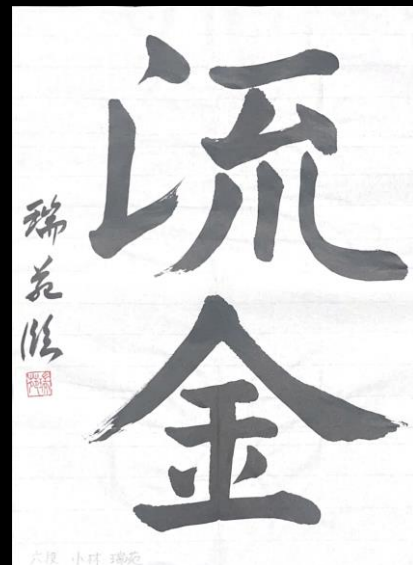 流金
瑞苑臨
六段 小林 瑞苑